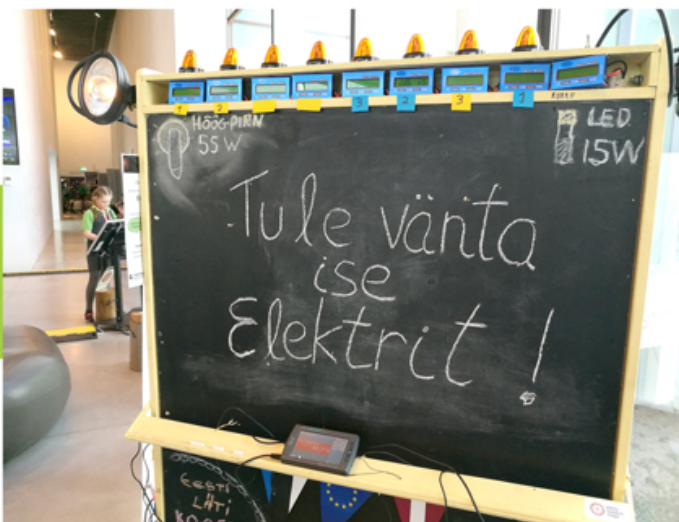 HÖÖG-PIRN
55 W
LED
15W
Tule vänta
ise
Elektrit!
EESTI
LÄTI